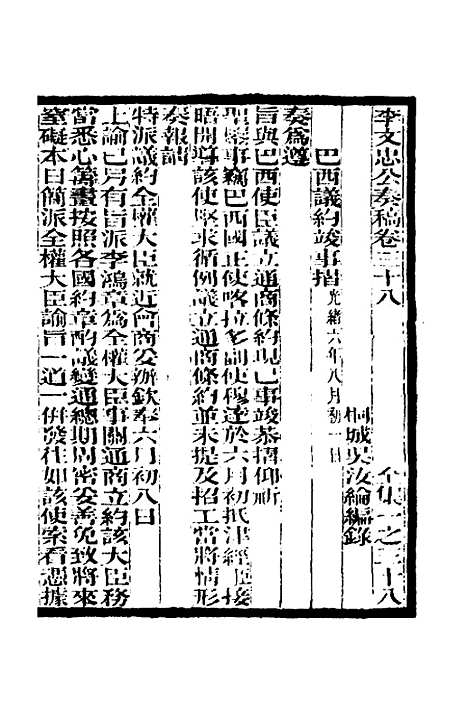 李文忠公奏稿卷三十八 全集一之三十八
桐城吳汝綸編錄
巴西議約竣事摺 光緒六年八月初一日
奏爲遵
旨與巴西使臣議立通商條約現已事竣恭摺仰祈
聖鑒事竊巴西國正使喀拉多副使穆達於六月初抵津經臣接
晤開導該使堅求循例議立通商條約並未提及招工當將情形
奏報請
特派議約全權大臣就近會商妥辦欽奉六月初八日
上諭已另有旨派李鴻章爲全權大臣事關通商立約該大臣務
當悉心籌畫按照各國約章酌議變通總期周密妥善免致將來
窒礙本日簡派全權大臣諭旨一道一併發往如該使索看憑據